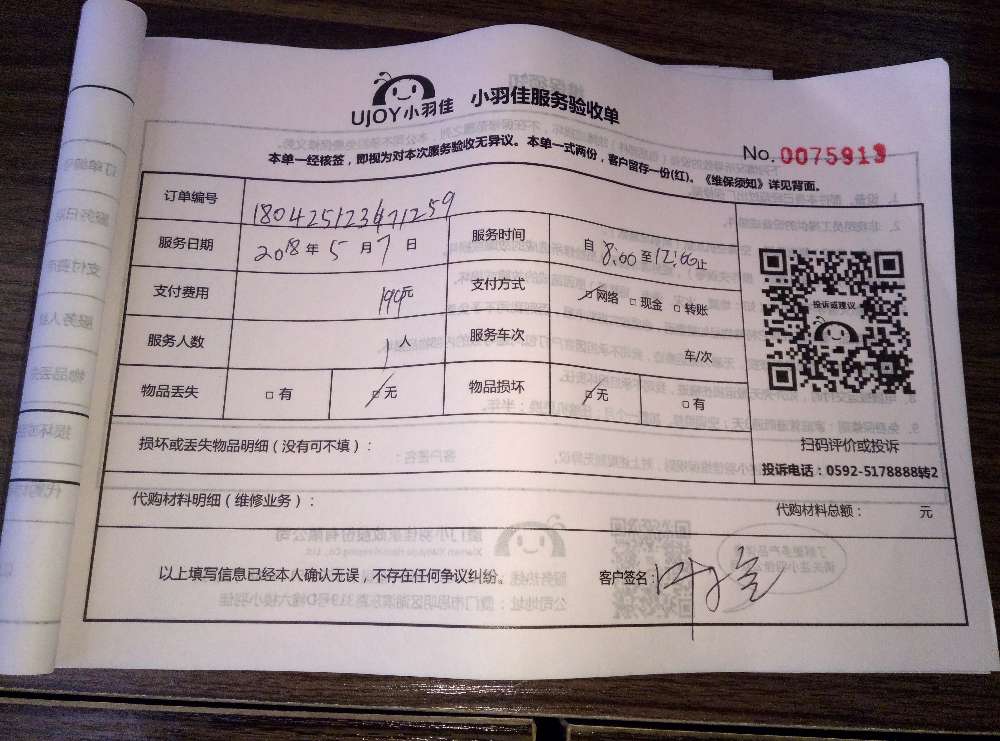 UJOY小羽佳 小羽佳服务验收单
本单一经核签，即视为对本次服务验收无异议。本单一式两份，客户留存一份(红)。《维保须知》详见背面。
No. 0075913
订单编号
服务日期 2018年5月7日 服务时间 自8:00至12:00止
支付费用 194元 支付方式 网络 现金 转账
服务人数 1人 服务车次 车/次
物品丢失 有 无 物品损坏 无 有
投诉或建议
扫码评价或投诉
投诉电话：0592-5178888转2
损坏或丢失物品明细（没有可不填）：
代购材料明细（维修业务）： 代购材料总额： 元
以上填写信息已经本人确认无误，不存在任何争议纠纷。 客户签名：